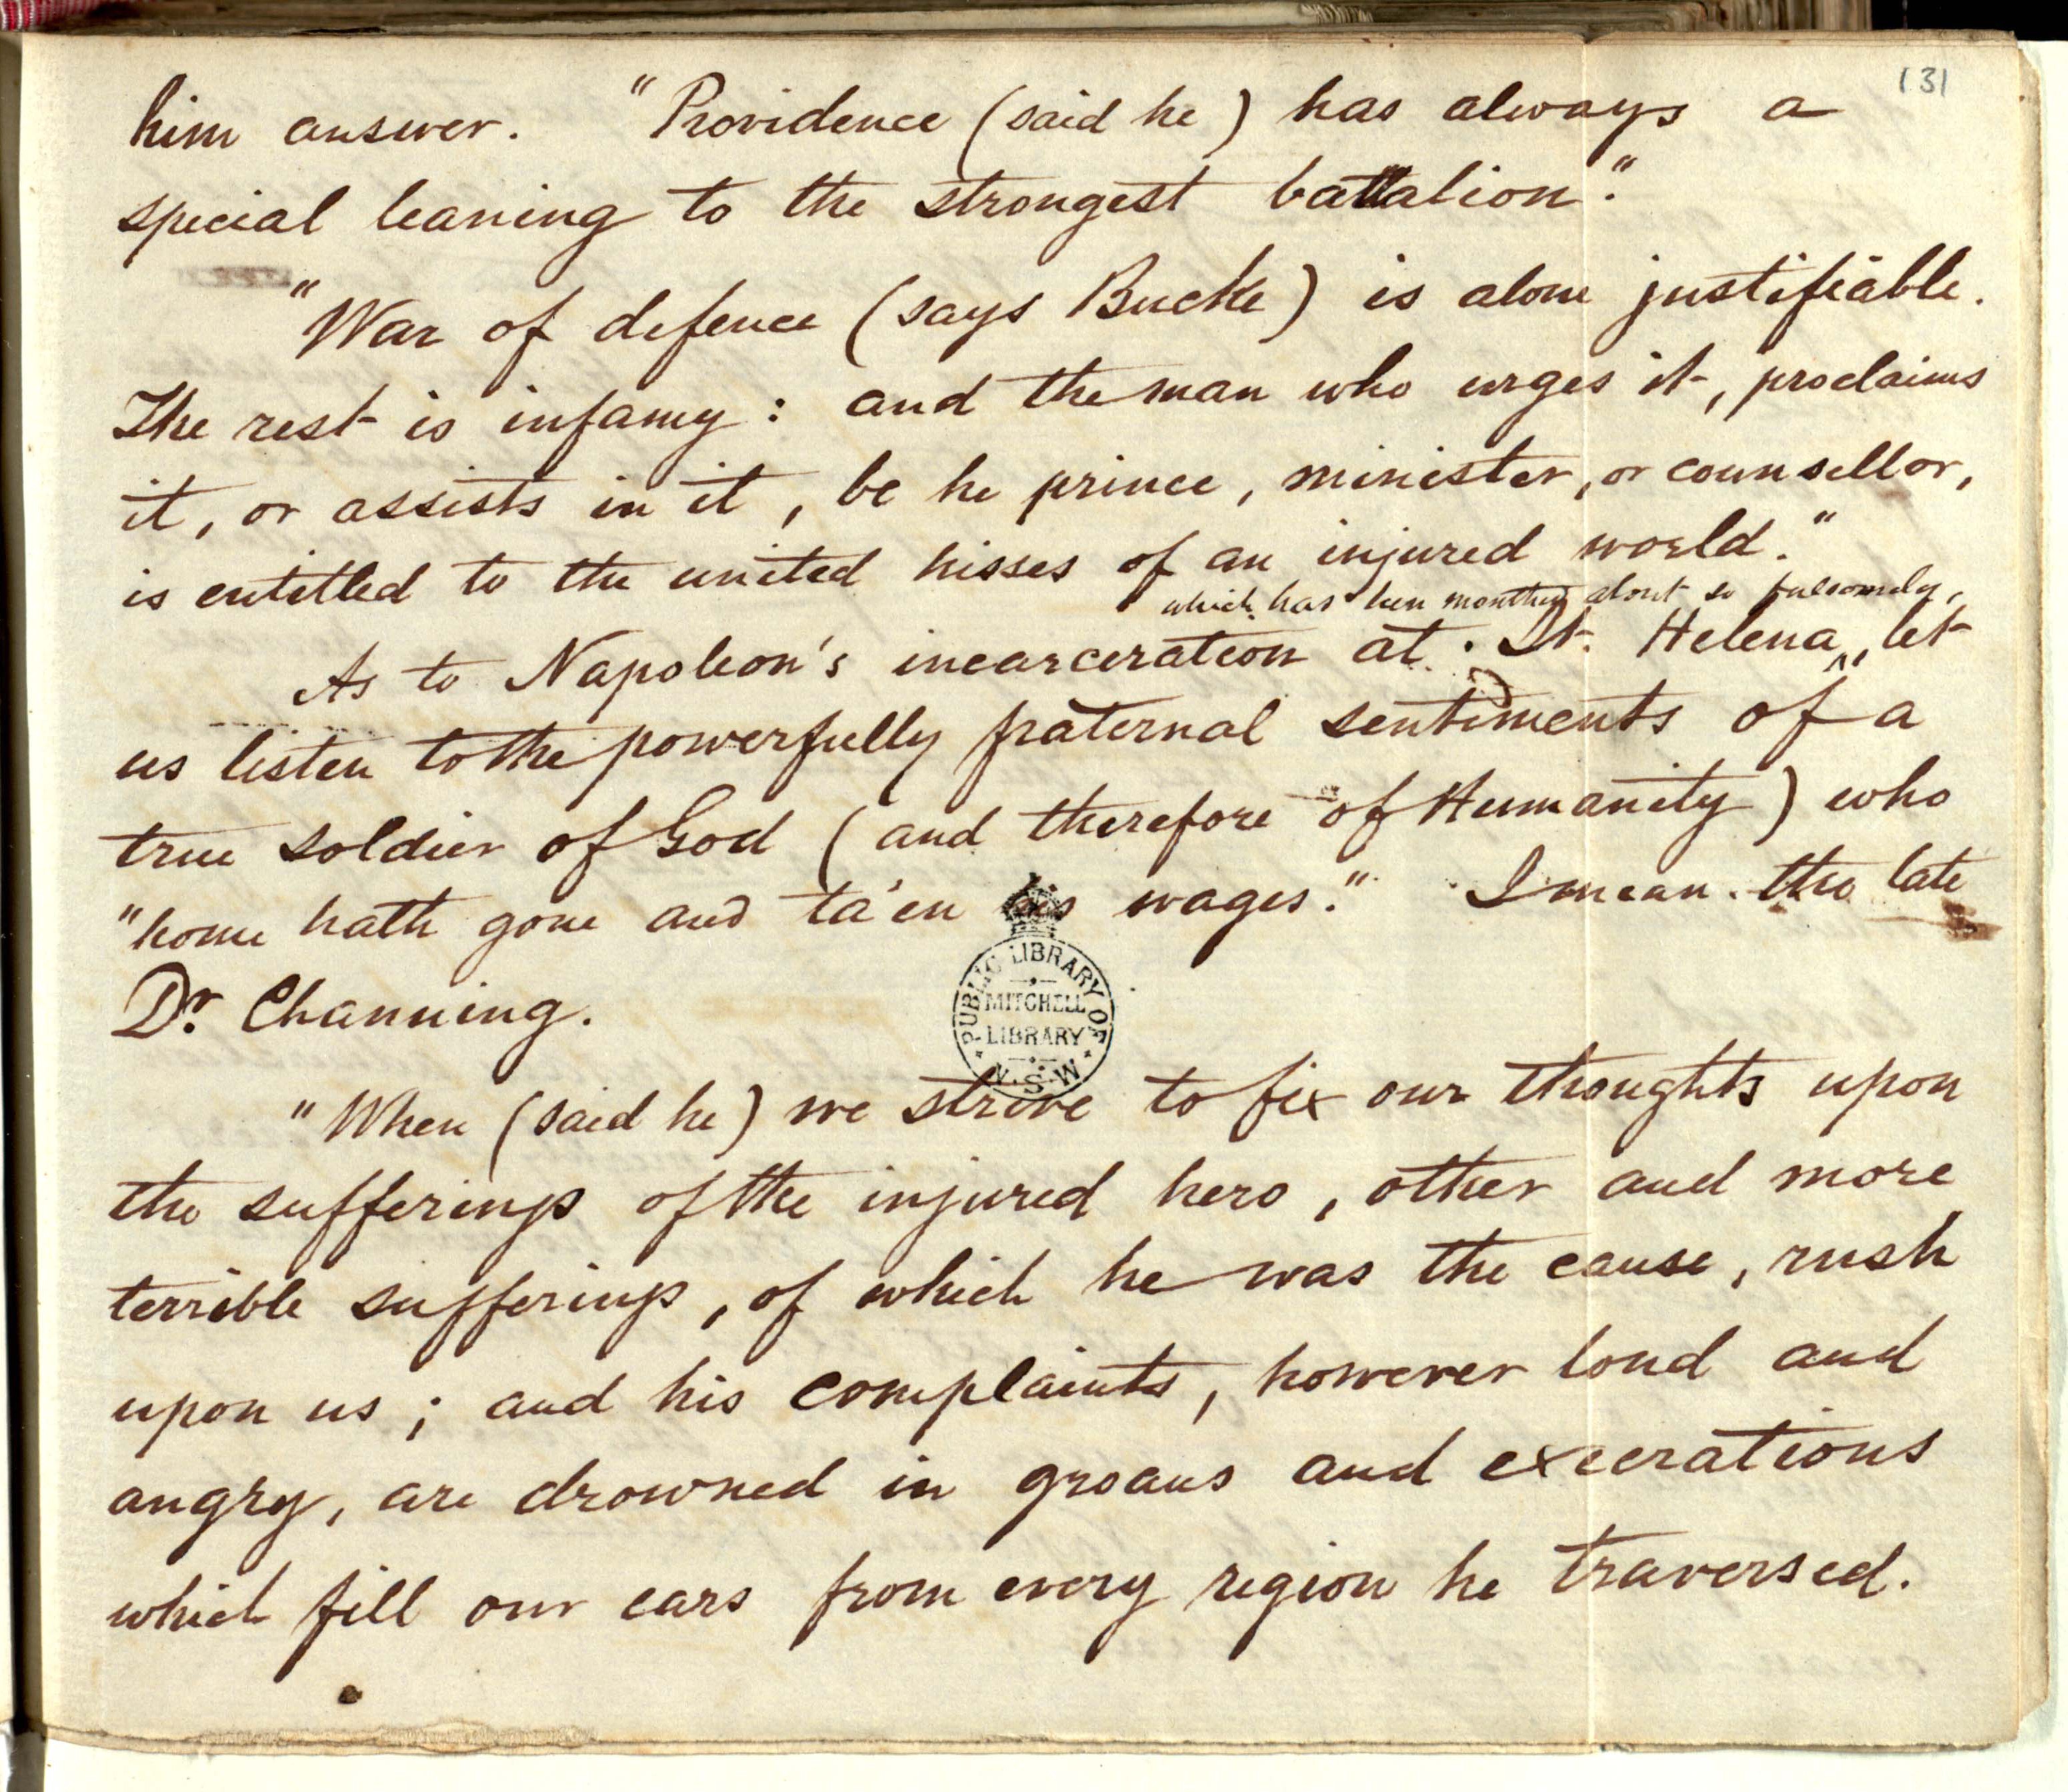 131
him answer. "Providence (said he) has always a
special leaning to the strongest battalion."
"War of defence (says Bucke) is alone justifiable.
The rest is infamy: and the man who urges it, proclaims
it, or assists in it, be he prince, minister, or counsellor,
is entitled to the united hisses of an injured world."
which has been mouthed about so fulsomely,
As to Napoleon's incarceration at St. Helena, let
us listen to the powerfully fraternal sentiments of a
true soldier of God (and therefore of Humanity) who
"home hath gone and ta'en his wages." I mean the late
Dr. Channing.
PUBLIC LIBRARY OF N.S.W.
MITCHELL
LIBRARY
"When (said he) we strive to fix our thoughts upon
the sufferings of the injured hero, other and more
terrible sufferings, of which he was the cause, rush
upon us; and his complaints, however loud and
angry, are drowned in groans and execrations
which fill our ears from every region he traversed.